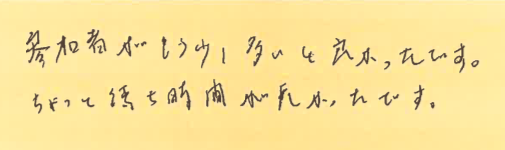 参加者がもう少し多いと良かったです。
ちょっと待ち時間が長かったです。